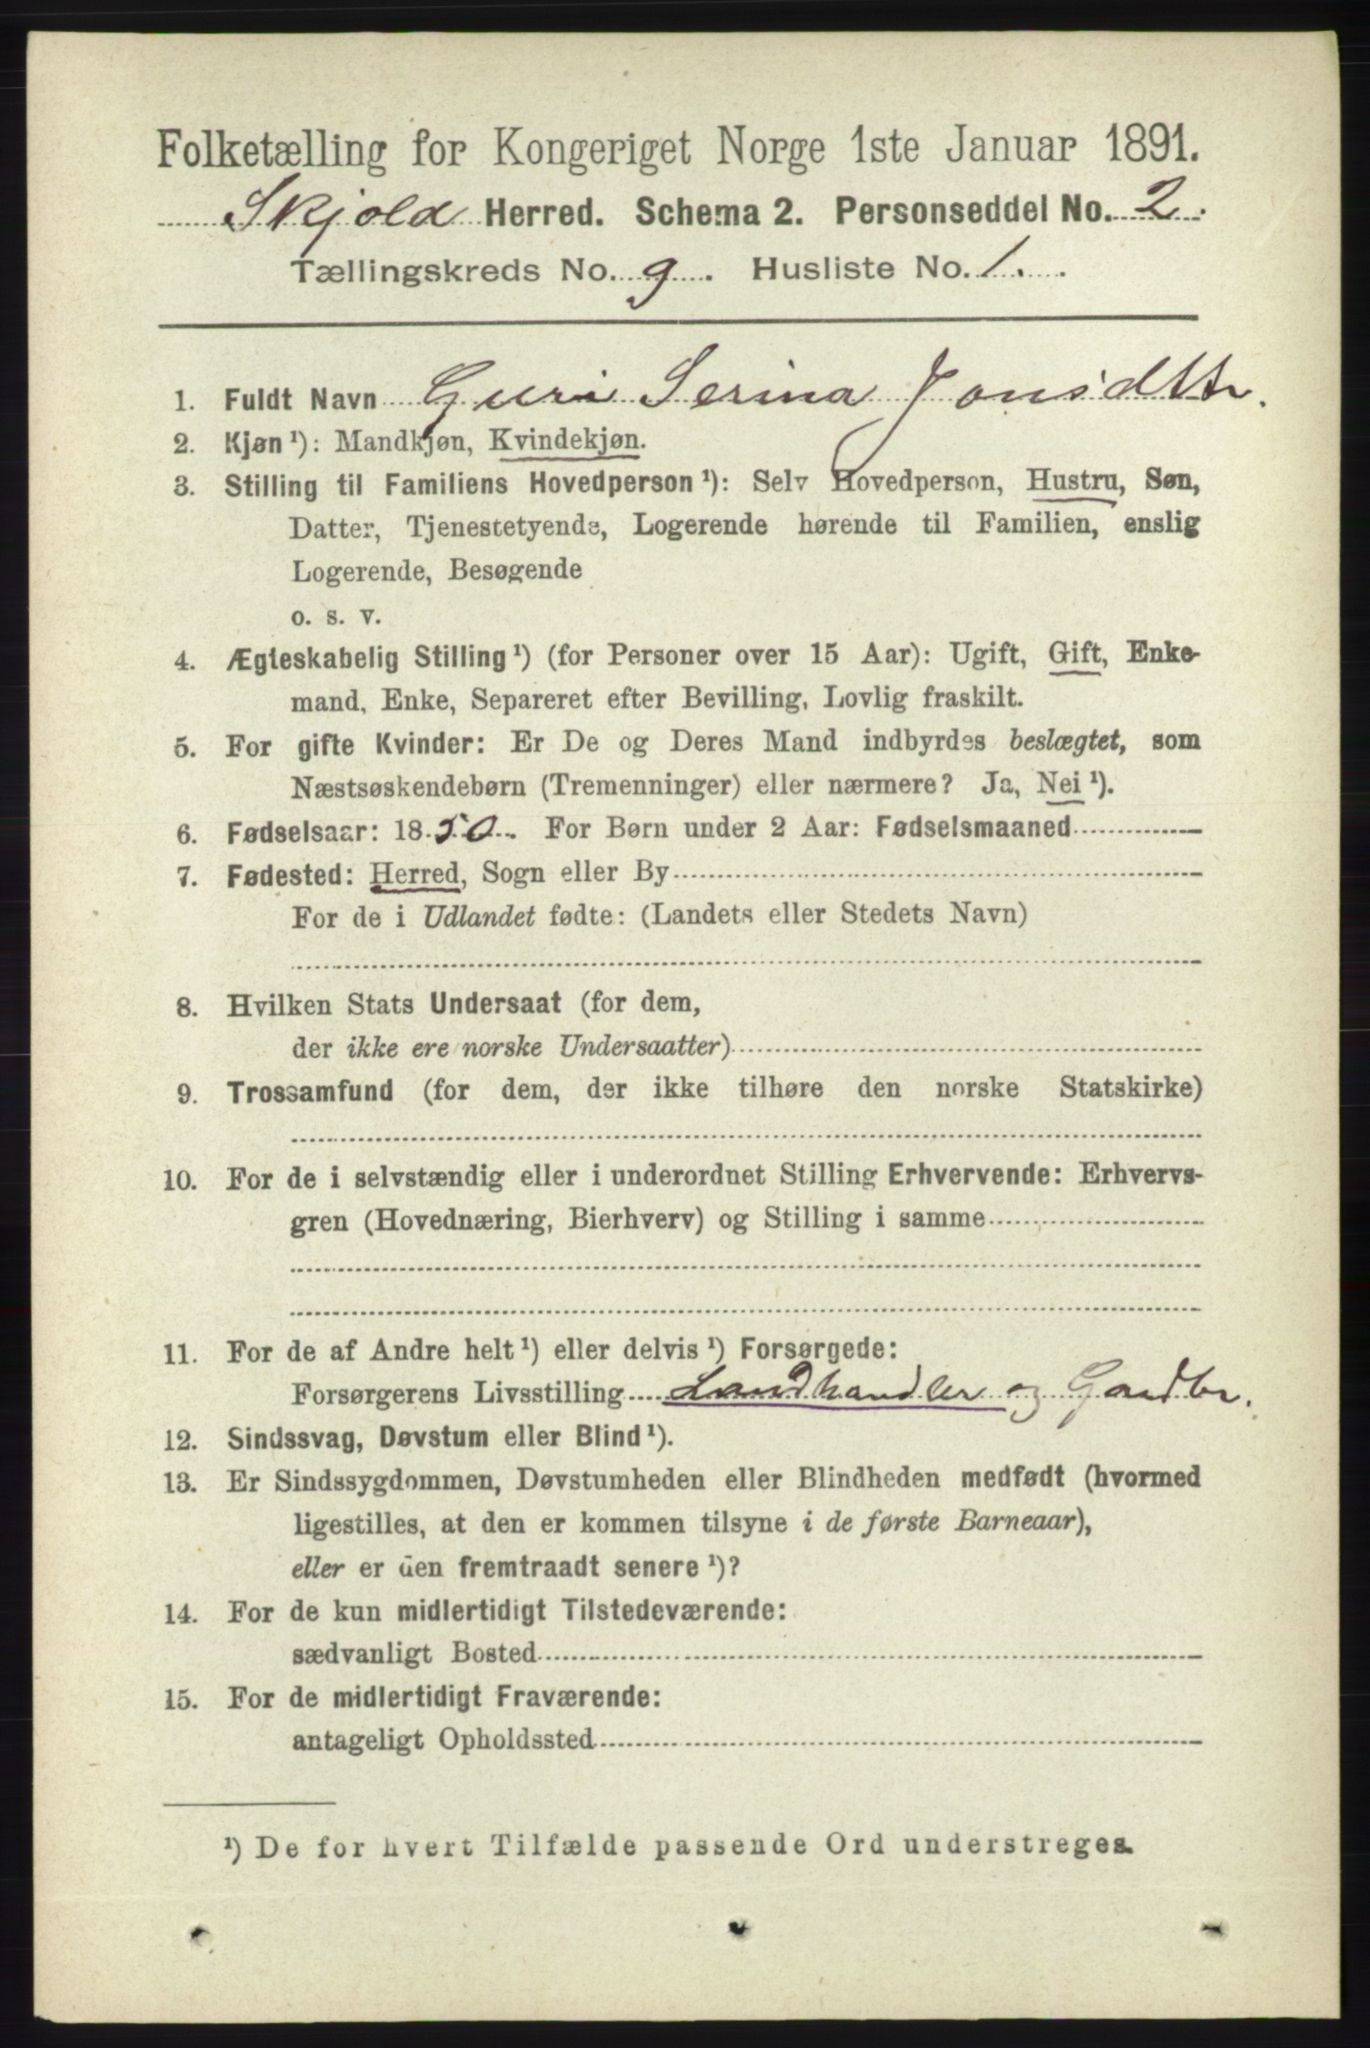 Folketælling for Kongeriget Norge 1ste Januar 1891.
Skjold Herred. Schema 2. Personseddel No. 2.
Tællingskreds No. 9. Husliste No. 1.
1. Fuldt Navn Guri Serina Jonsdttr.
2. Kjøn ¹): Mandkjøn, Kvindekjøn.
3. Stilling til Familiens Hovedperson ¹): Selv Hovedperson, Hustru, Søn,
Datter, Tjenestetyende, Logerende hørende til Familien, enslig
Logerende, Besøgende
o. s. v.
4. Ægteskabelig Stilling ¹) (for Personer over 15 Aar): Ugift, Gift, Enke-
mand, Enke, Separeret efter Bevilling, Lovlig fraskilt.
5. For gifte Kvinder: Er De og Deres Mand indbyrdes beslægtet, som
Næstsøskendebørn (Tremenninger) eller nærmere? Ja, Nei ¹).
6. Fødselsaar: 1850. For Børn under 2 Aar: Fødselsmaaned
7. Fødested: Herred, Sogn eller By
For de i Udlandet fødte: (Landets eller Stedets Navn)
8. Hvilken Stats Undersaat (for dem,
der ikke ere norske Undersaatter)
9. Trossamfund (for dem, der ikke tilhøre den norske Statskirke)
10. For de i selvstændig eller i underordnet Stilling Erhvervende: Erhvervs-
gren (Hovednæring, Bierhverv) og Stilling i samme
11. For de af Andre helt ¹) eller delvis ¹) Forsørgede:
Forsørgerens Livsstilling Landhandler og Gaardbr.
12. Sindssvag, Døvstum eller Blind ¹).
13. Er Sindssygdommen, Døvstumheden eller Blindheden medfødt (hvormed
ligestilles, at den er kommen tilsyne i de første Barneaar),
eller er den fremtraadt senere ¹)?
14. For de kun midlertidigt Tilstedeværende:
sædvanligt Bosted
15. For de midlertidigt Fraværende:
antageligt Opholdssted
¹) De for hvert Tilfælde passende Ord understreges.